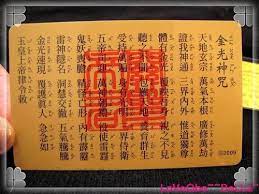 金光神咒
天地玄宗 萬氣本根 廣修萬劫
證我神通 三界內外 惟道獨尊
體有金光 覆映吾身 視之不見
聽之不聞 包羅天地 養育群生
受持萬遍 身有光明 三界侍衛
五帝司迎 萬神朝禮 役使雷霆
鬼妖喪膽 精怪亡形 內有霹靂
雷神隱名 洞慧交徹 五氣騰騰
金光速現 覆護真人 急急如
玉皇上帝律令敕
©2009